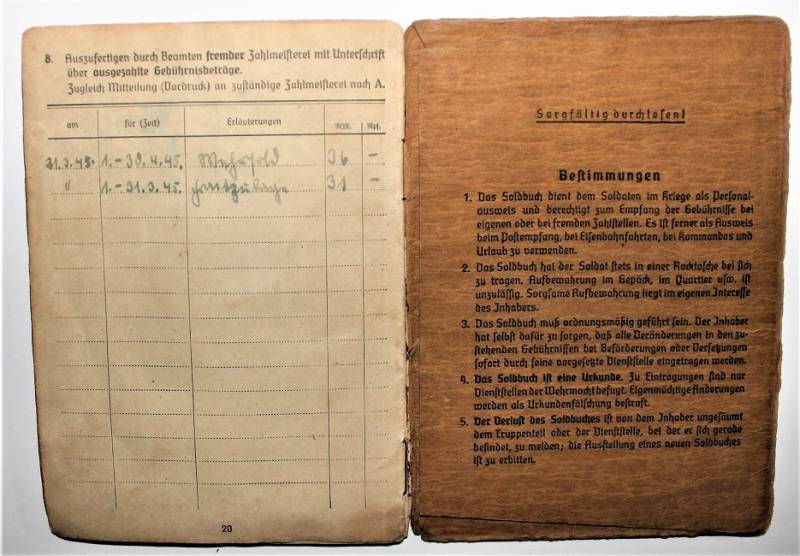 B. Auszufertigen durch Beamten fremder Zahlmeisterei mit Unterschrift
über ausgezahlte Gebührnisbeträge.
Zugleich Mitteilung (Vordruck) an zuständige Zahlmeisterei nach A.
am für (Zeit) Erläuterungen RM. Rpf.
31.3.45. 1.-30.4.45. Wehrsold 36 -
" 1.-31.3.45. Frontzulage 31 -
20
Sorgfältig durchlesen!
Bestimmungen
1. Das Soldbuch dient dem Soldaten im Kriege als Personal-
ausweis und berechtigt zum Empfang der Gebührnisse bei
eigenen oder bei fremden Zahlstellen. Es ist ferner als Ausweis
beim Postempfang, bei Eisenbahnfahrten, bei Kommandos und
Urlaub zu verwenden.
2. Das Soldbuch hat der Soldat stets in einer Rocktasche bei sich
zu tragen. Aufbewahrung im Gepäck, im Quartier usw. ist
unzulässig. Sorgsame Aufbewahrung liegt im eigenen Interesse
des Inhabers.
3. Das Soldbuch muß ordnungsmäßig geführt sein. Der Inhaber
hat selbst dafür zu sorgen, daß alle Veränderungen in den zu-
stehenden Gebührnissen bei Beförderungen oder Versetzungen
sofort durch seine vorgesetzte Dienststelle eingetragen werden.
4. Das Soldbuch ist eine Urkunde. Zu Eintragungen sind nur
Dienststellen der Wehrmacht befugt. Eigenmächtige Änderungen
werden als Urkundenfälschung bestraft.
5. Der Verlust des Soldbuches ist von dem Inhaber ungesäumt
dem Truppenteil oder der Dienststelle, bei der er sich gerade
befindet, zu melden; die Ausstellung eines neuen Soldbuches
ist zu erbitten.